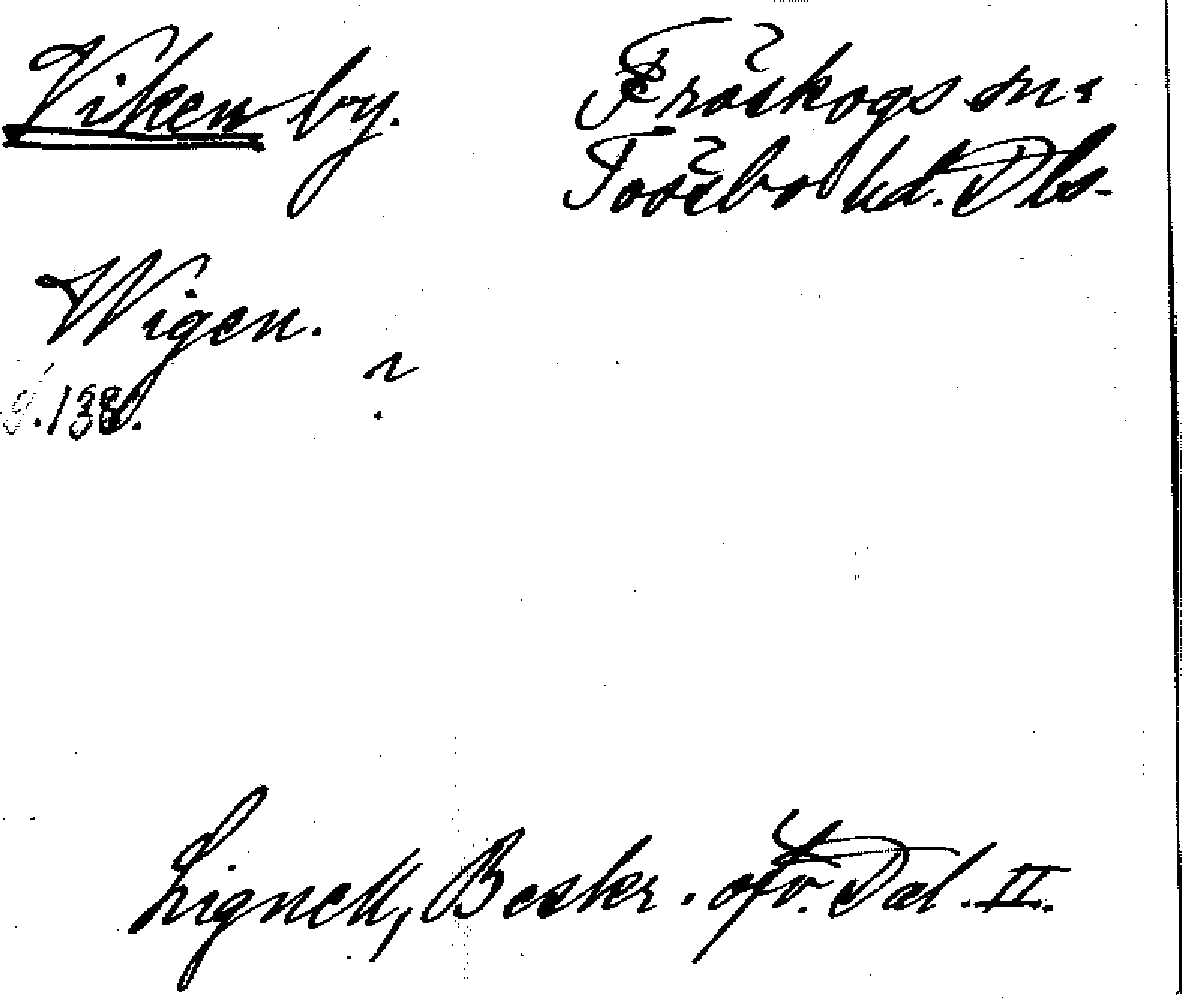 Viken by.
Fröskogs sn.
Tössbo hd. Dls.
Wigen.
s. 138.
?
Lignell, Beskr. öfv. Dal. II.